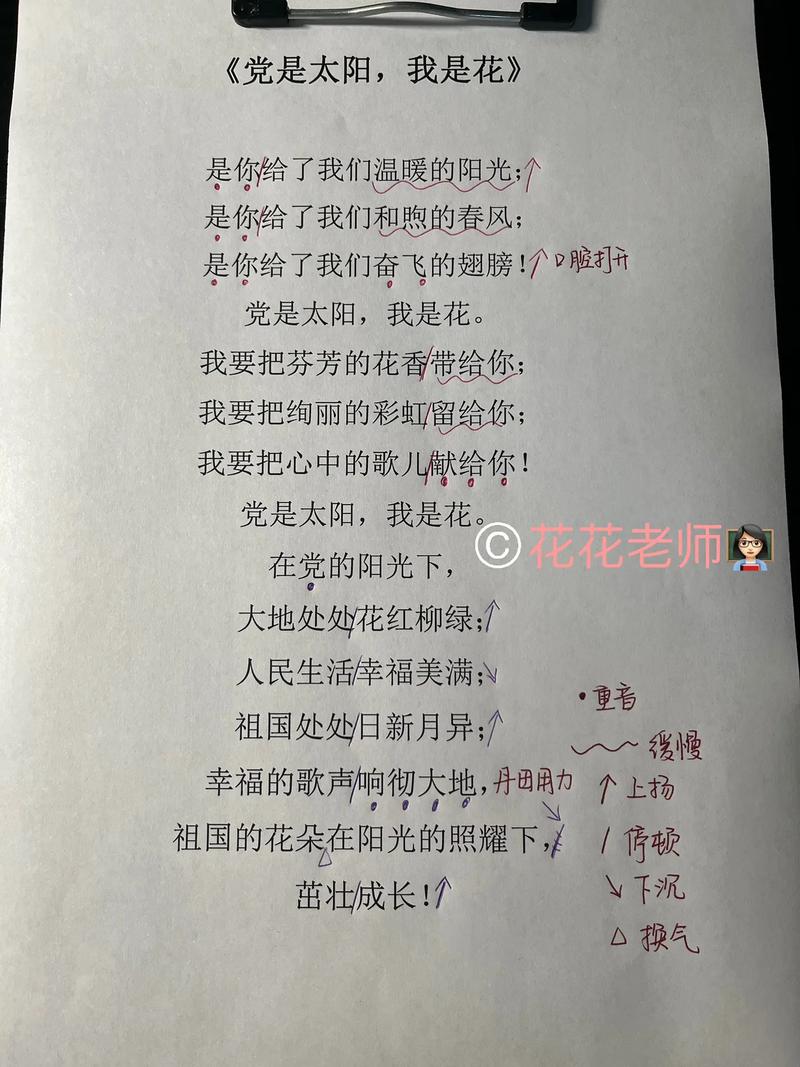 《党是太阳，我是花》
是你/给了我们温暖的阳光；↑
是你/给了我们和煦的春风；
是你给了我们奋飞的翅膀！↑ 口腔打开
党是太阳，我是花。
我要把芬芳的花香/带给你；
我要把绚丽的彩虹/留给你；
我要把心中的歌儿/献给你！
党是太阳，我是花。
©花花老师👩🏻‍🏫
在党的阳光下，
大地处处/花红柳绿；↑
人民生活/幸福美满；↘
祖国处处/日新月异；↑
幸福的歌声/响彻大地，丹田用力
祖国的花朵△在阳光的照耀下，↘/
茁壮/成长！↑
•重音
﹏﹏缓慢
↑上扬
/停顿
↘下沉
△换气